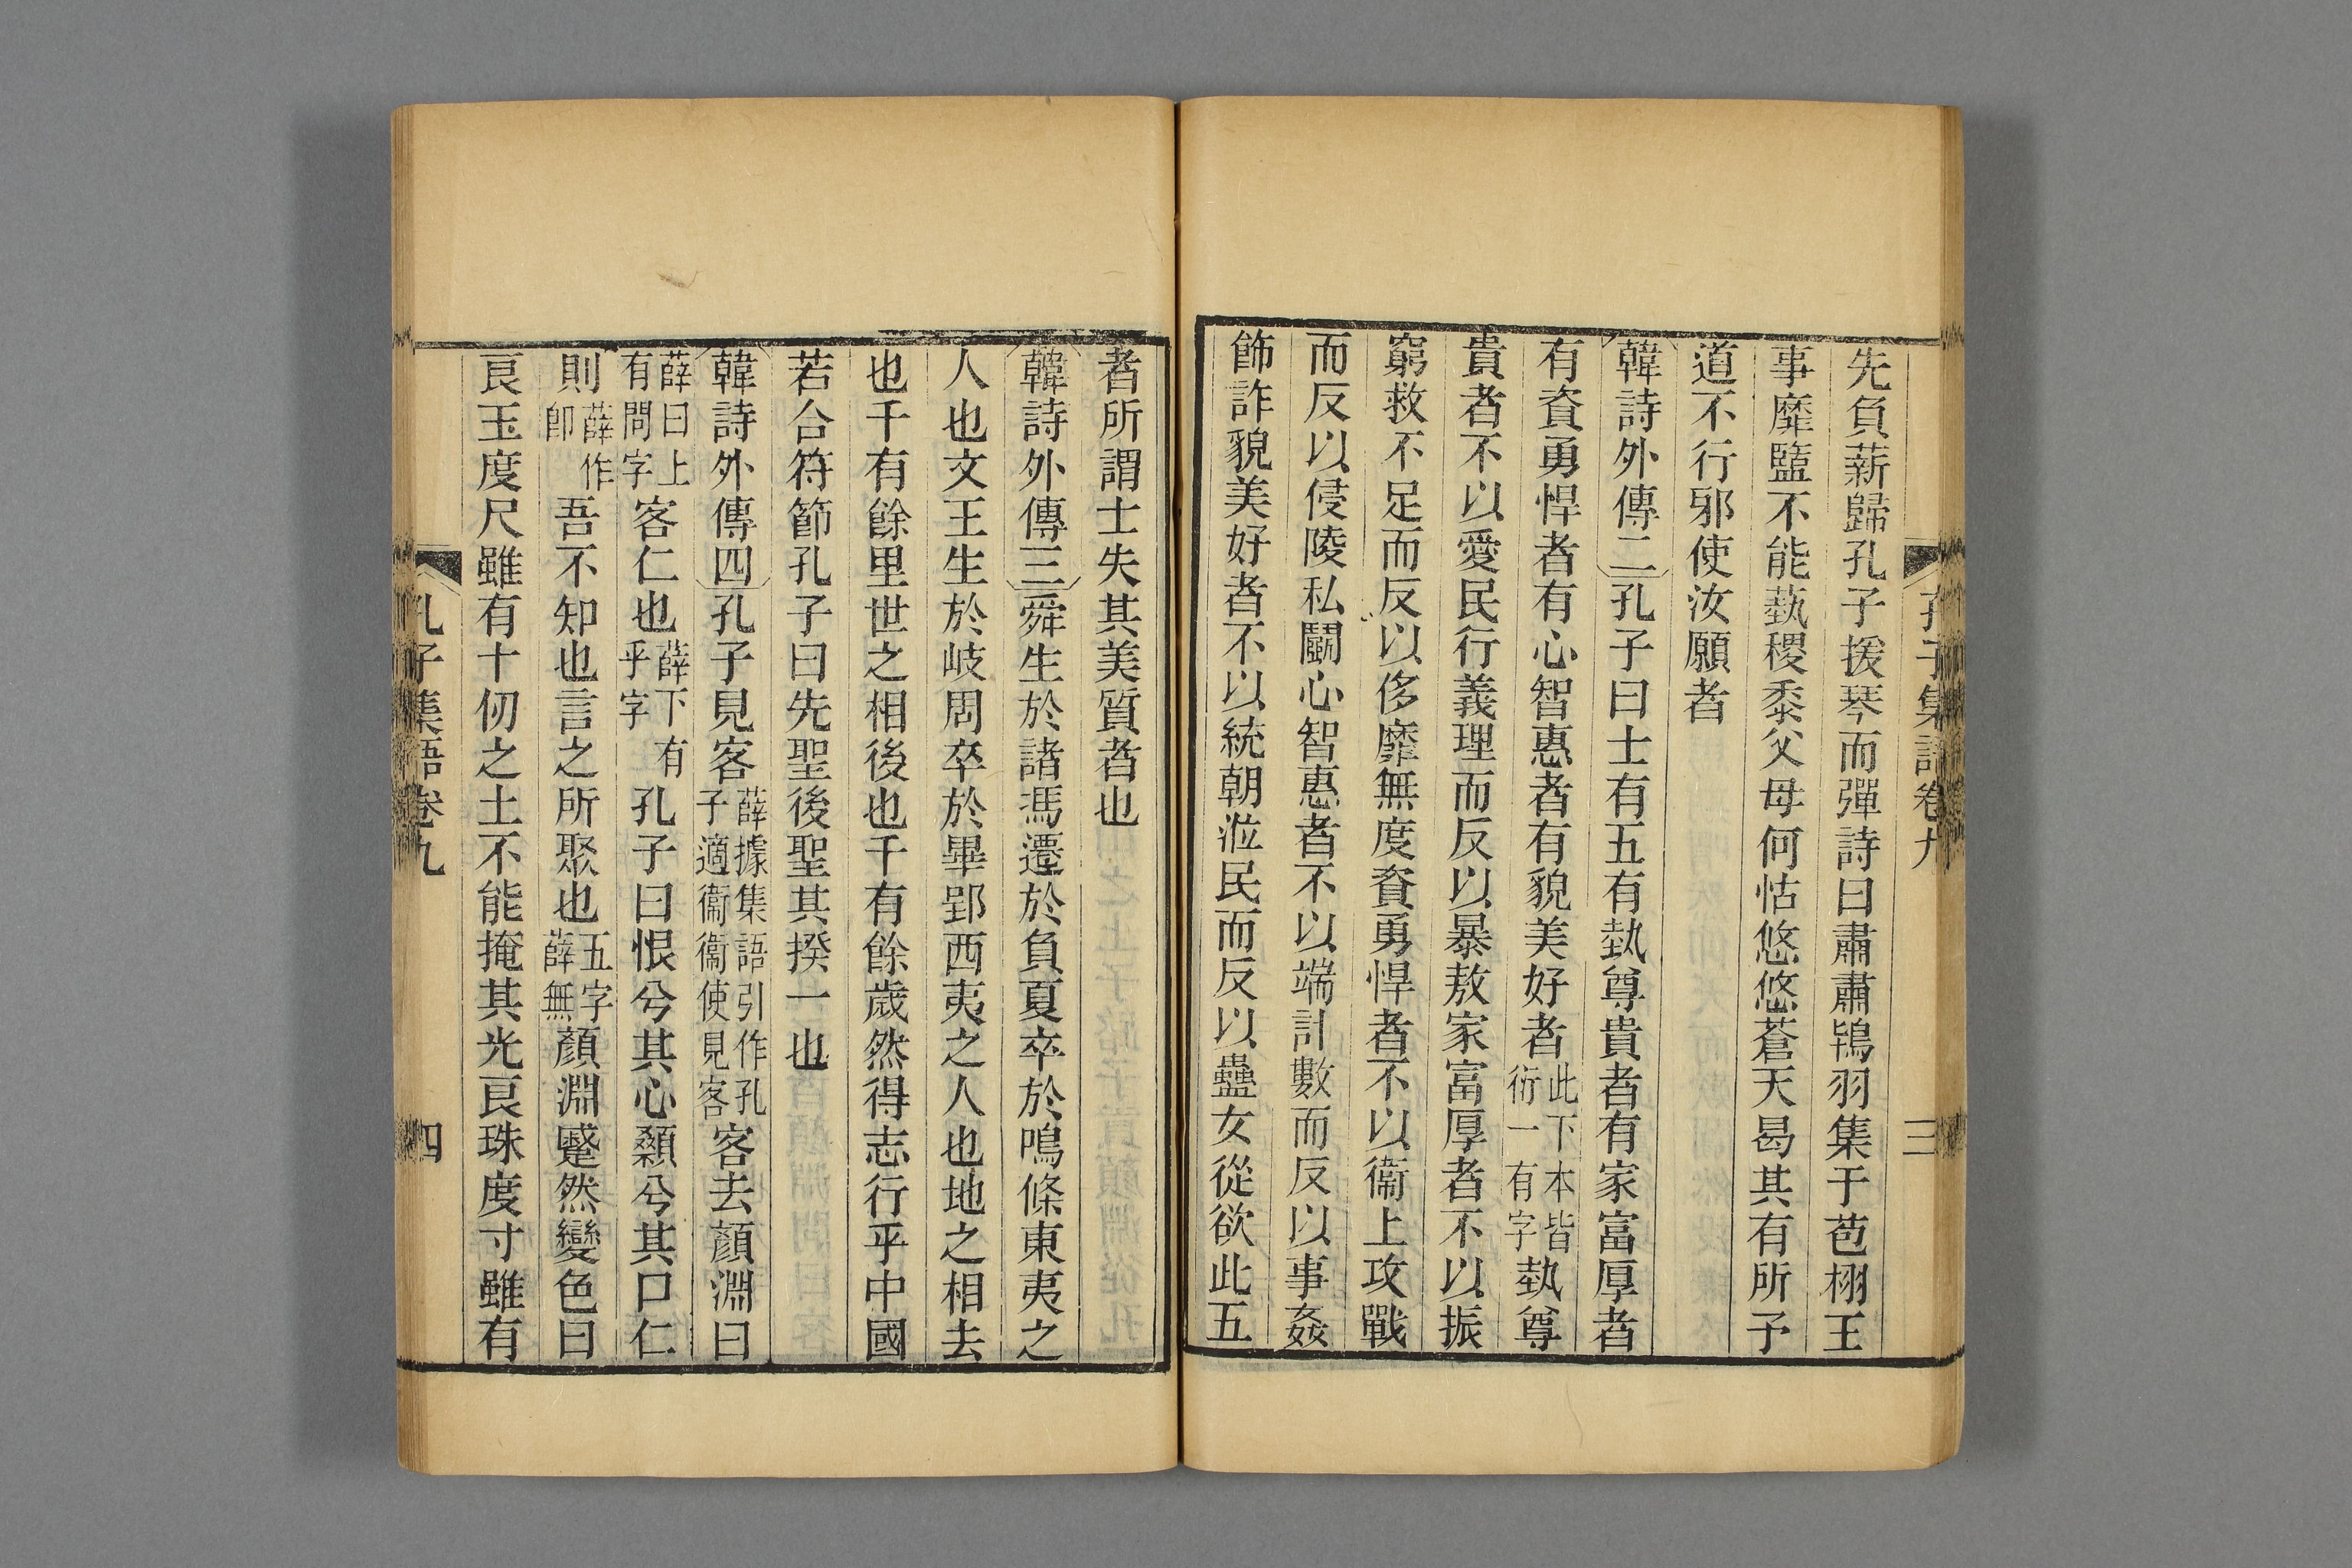 孔子集語卷九
三
先負薪歸孔子援琴而彈詩曰肅肅鴇羽集于苞栩王
事靡盬不能蓺稷黍父母何怙悠悠蒼天曷其有所予
道不行邪使汝願者
韓詩外傳二孔子曰士有五有埶尊貴者有家富厚者
有資勇悍者有心智惠者有貌美好者此下本皆衍一有字埶尊
貴者不以愛民行義理而反以暴敖家富厚者不以振
窮救不足而反以侈靡無度資勇悍者不以衞上攻戰
而反以侵陵私鬬心智惠者不以端計數而反以事姦
飾詐貌美好者不以統朝涖民而反以蠱女從欲此五
者所謂士失其美質者也
韓詩外傳三舜生於諸馮遷於負夏卒於鳴條東夷之
人也文王生於岐周卒於畢郢西夷之人也地之相去
也千有餘里世之相後也千有餘歲然得志行乎中國
若合符節孔子曰先聖後聖其揆一也
韓詩外傳四孔子見客薛據集語引作孔子適衞衞使見客客去顏淵曰
薛曰上有問字客仁也薛下有乎字孔子曰恨兮其心顙兮其口仁
則薛作卽吾不知也言之所聚也五字薛無顏淵蹙然變色曰
良玉度尺雖有十仞之土不能掩其光良珠度寸雖有
孔子集語卷九
四